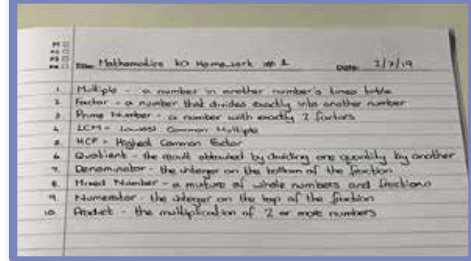 Title: Mathematics KO Homework # 1 Date: 2/9/19
1. Multiple - a number in another number's times table
2. Factor - a number that divides exactly into another number
3. Prime Number - a number with exactly 2 factors
4. LCM - Lowest Common Multiple
5. HCF - Highest Common Factor
6. Quotient - the result obtained by dividing one quantity by another
7. Denominator - the integer on the bottom of the fraction
8. Mixed Number - a mixture of whole numbers and fractions
9. Numerator - the integer on the top of the fraction
10. Product - the multiplication of 2 or more numbers